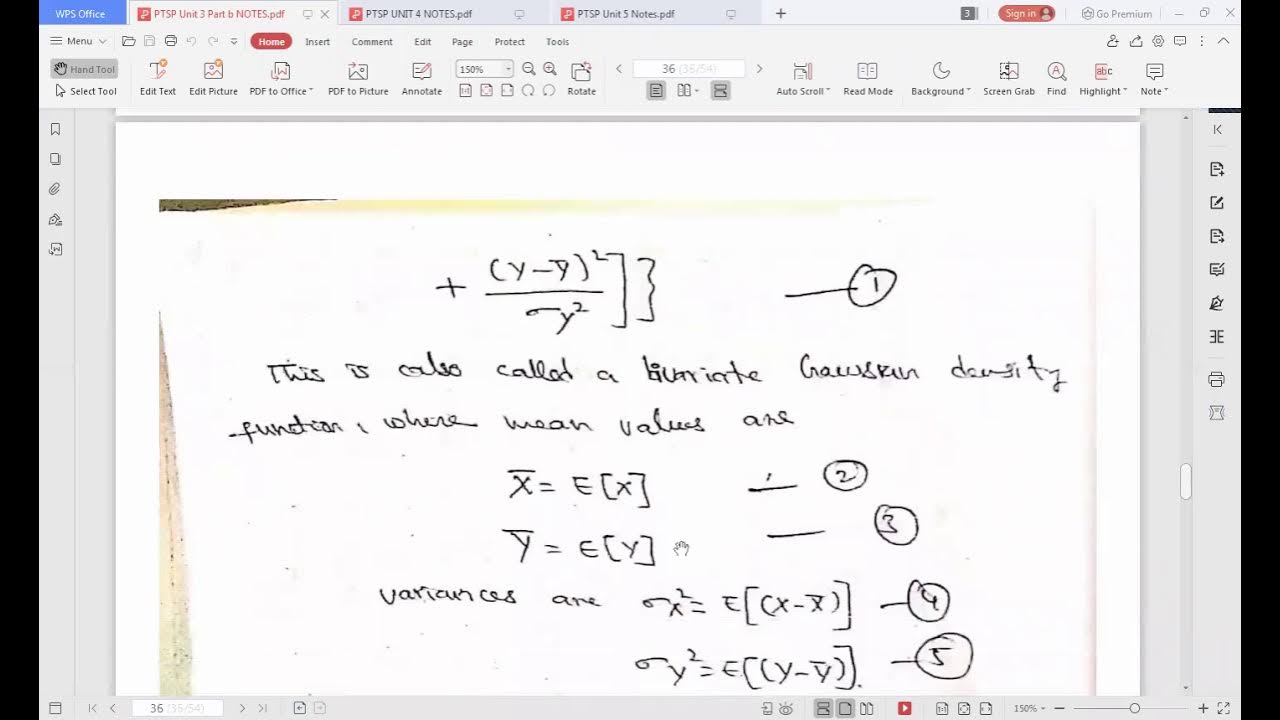 WPS Office
PTSP Unit 3 Part b NOTES.pdf
PTSP UNIT 4 NOTES.pdf
PTSP Unit 5 Notes.pdf
3
Sign in
Go Premium
Menu
Home
Insert
Comment
Edit
Page
Protect
Tools
Hand Tool
Select Tool
Edit Text
Edit Picture
PDF to Office
PDF to Picture
Annotate
150%
Rotate
36 (35/54)
Auto Scroll
Read Mode
Background
Screen Grab
Find
Highlight
Note
+ (Y-Ȳ)²/σy² ]} — ①
This is also called a bivariate Gaussian density
function, where mean values are
X̄ = E[X] — ②
Ȳ = E[Y] — ③
variances are σx² = E[(X-X̄)] — ④
σy² = E[(Y-Ȳ)]. — ⑤
36 (35/54)
150%